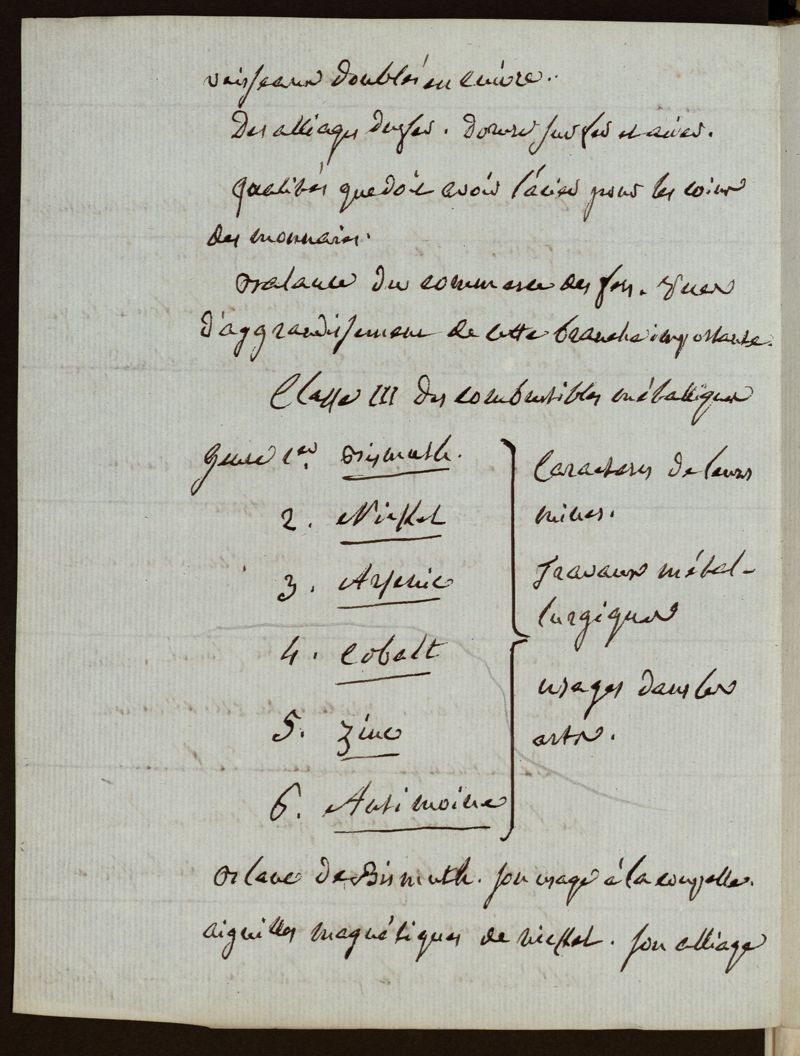 vaisseaux doublés en cuivre.
Des alliages du fer. Dorure sur fer et acier.
qualités que doit avoir l'acier pour les coins
des monnaies.
Balance du commerce des fers. Vues
d'aggrandissement de cette branche importante.
Classe III des combustibles métalliques
Genre 1er. Bismuth.
2. Nickel
3. Arsenic
4. Cobalt
5. zinc
6. Antimoine
Caracteres de leurs
mines.
Travaux métal-
lurgiques
usages dans les
arts.
Blanc de Bismuth. son usage à la coupelle.
aiguilles magnétiques de nickel. son alliage